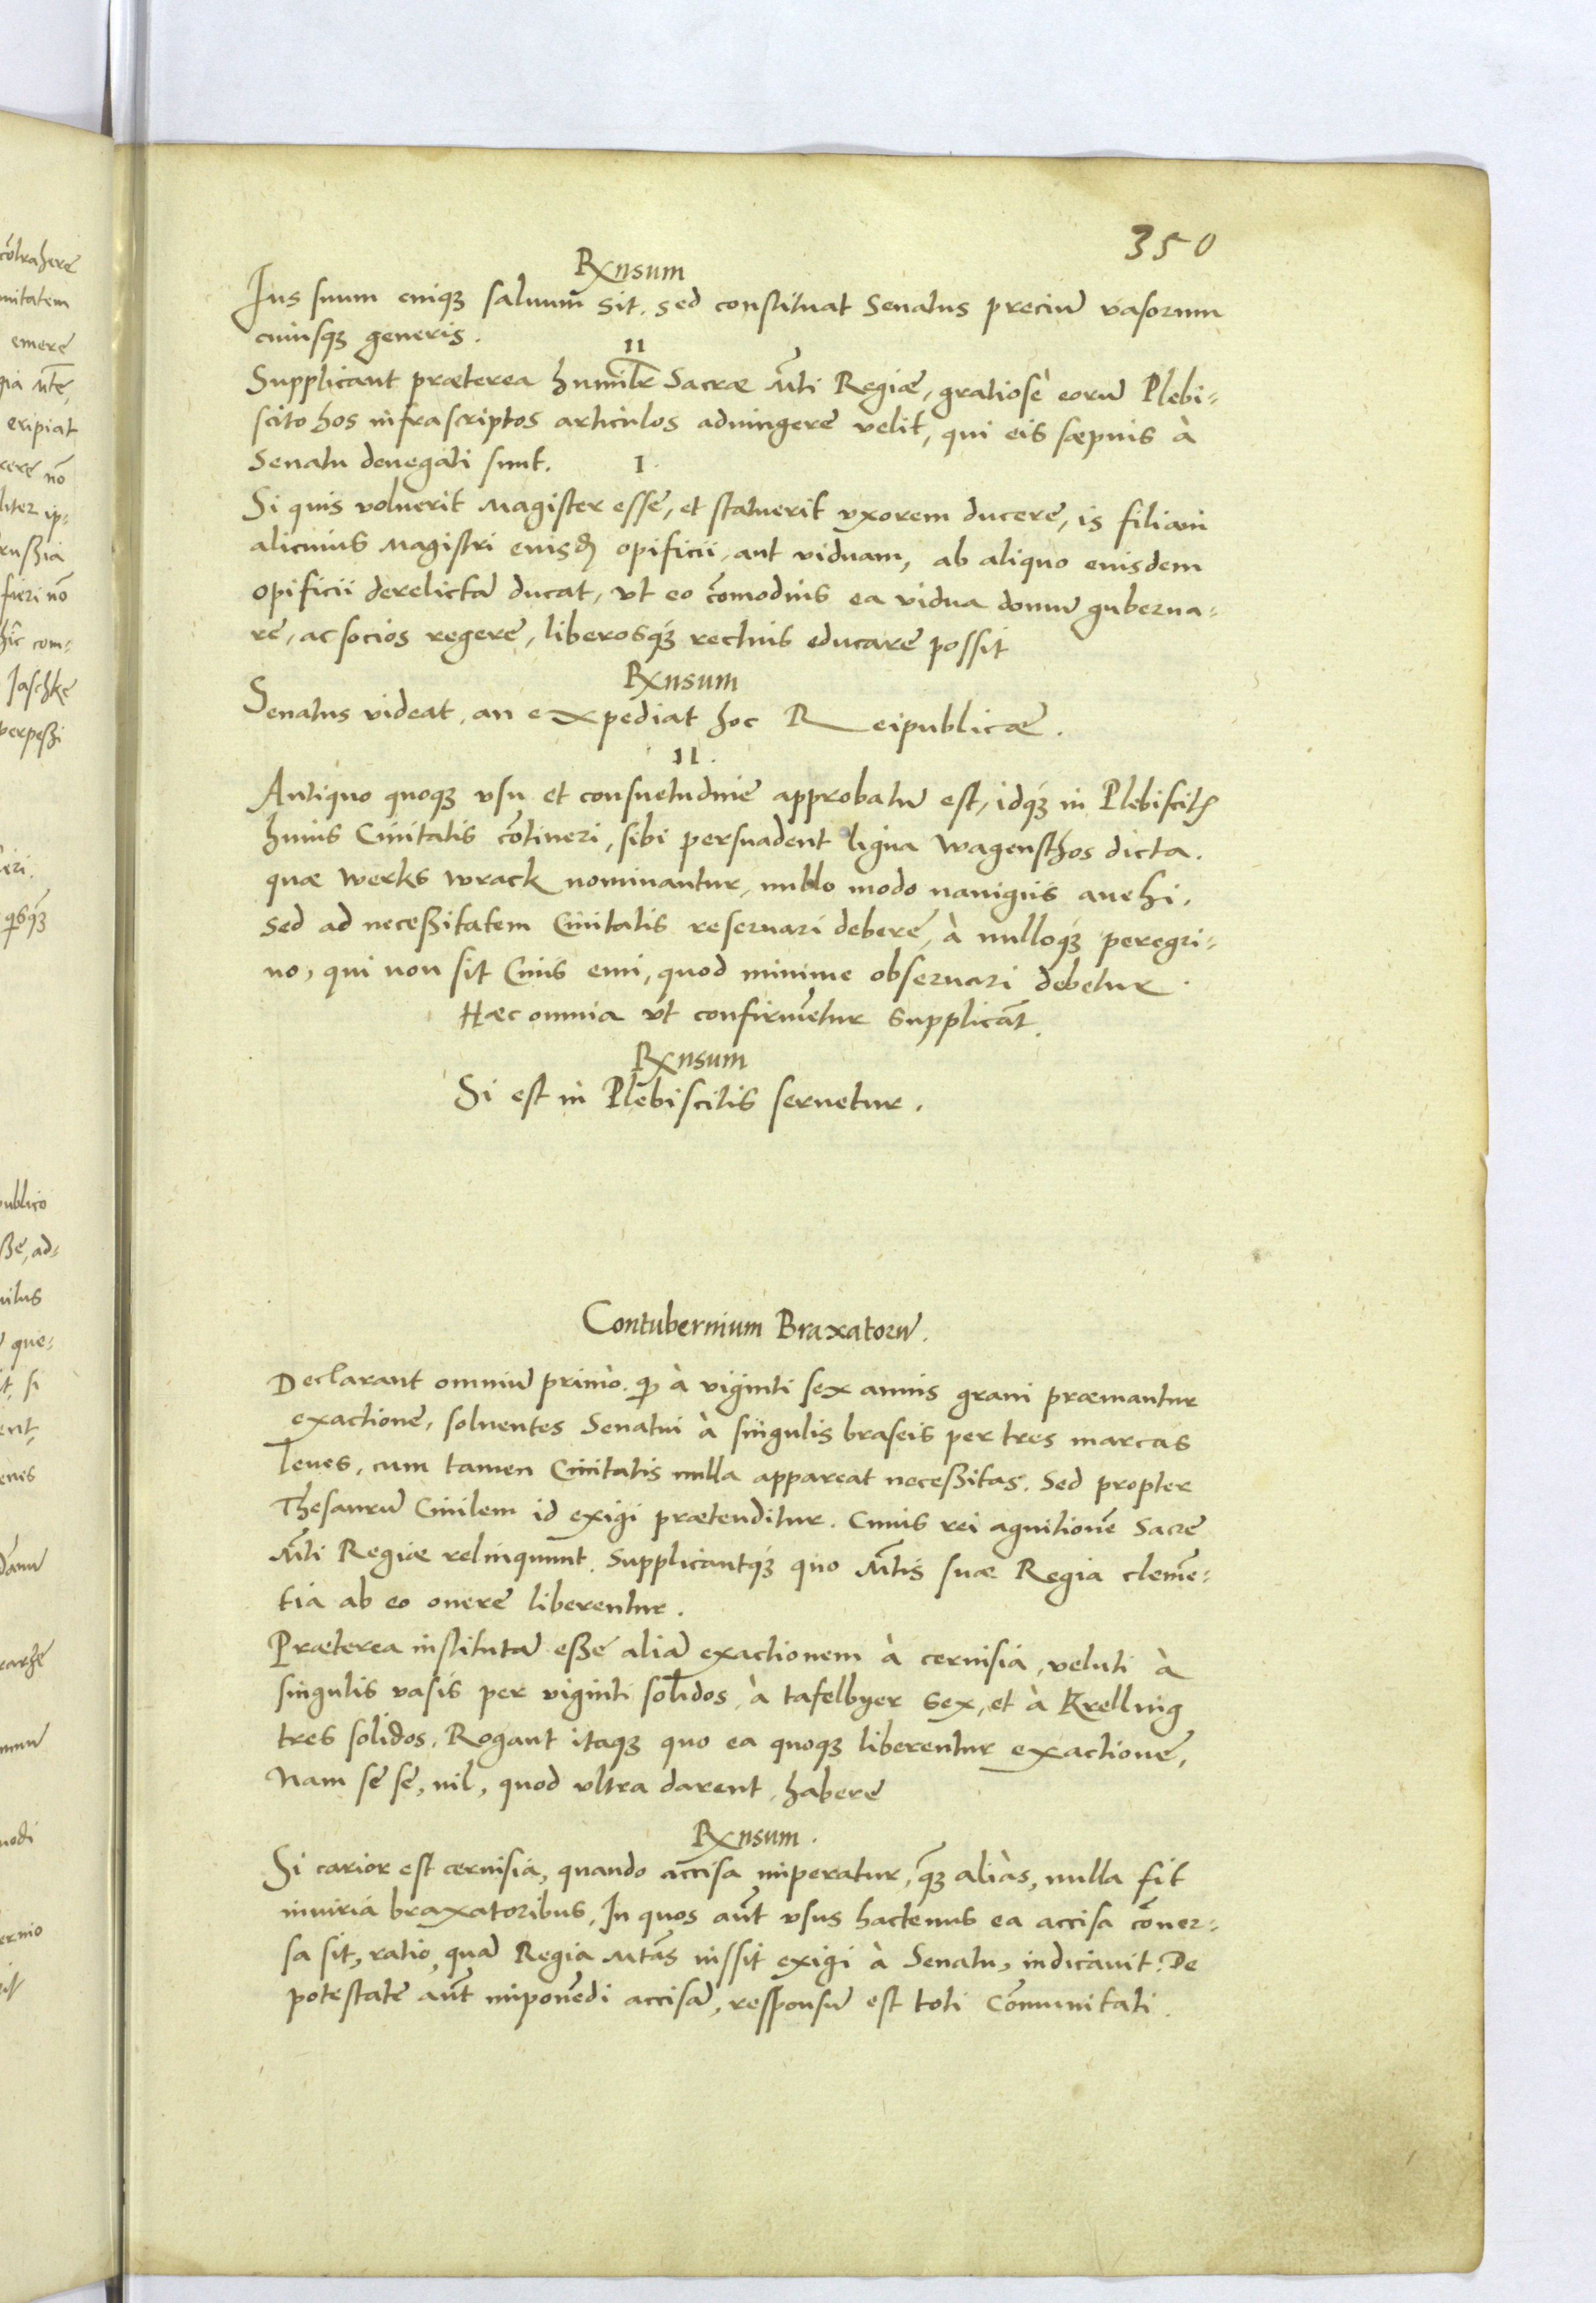 350
Rxnsum
Ius suum cuiqꝫ saluum sit. sed constituat Senatus preciũ vasorum
cuiusqꝫ generis.
II
Supplicant præterea humilr̃ Sacræ Mt̃i Regiæ, gratiosè eorũ Plebi-
scito hos infrascriptos articulos adiungere velit, qui eis sæpius à
Senatu denegati sunt.
I.
Si quis voluerit Magister esse, et statuerit vxorem ducere, is filiam
alicuius Magistri eiusd̃ opificii, aut viduam, ab aliquo eiusdem
opificii derelictã ducat, vt eo cõmodius ea vidua domũ guberna-
re, ac socios regere, liberosqꝫ rectius educare possit
Rxnsum
Senatus videat, an expediat hoc Reipublicæ.
II.
Antiquo quoqꝫ vsu et consuetudine approbatũ est, idqꝫ in Plebiscitꝭ
huius Ciuitatis cõtineri, sibi persuadent ligna wagensthos dicta.
quæ werks wrack nominantur, nullo modo nauigiis auehi,
sed ad neceßitatem Ciuitatis reseruari debere, à nulloqꝫ peregri-
no, qui non sit Ciuis emi, quod minime obseruari debetur.
Hæc omnia vt confirmẽtur supplicãt.
Rxnsum
Si est in Plebiscitis seruetur.
Contubernium Braxatorũ.
Declarant omniũ primò. ꝙ à viginti sex annis graui præmantur
exactione, soluentes Senatui à singulis braseis per tres marcas
leues, cum tamen Ciuitatis nulla appareat neceßitas. Sed propter
Thesaurũ Ciuilem id exigi prætenditur. Cuius rei agnitionẽ Sacre
Mt̃i Regiæ relinquunt. Supplicantqꝫ quo Mt̃is suæ Regia clemẽ-
tia ab eo onere liberentur.
Præterea institutã eße aliã exactionem à ceruisia, veluti à
singulis vasis per viginti solidos, à tafelbyer sex, et à Krelling
tres solidos. Rogant itaqꝫ quo ea quoqꝫ liberentur exactione,
Nam se se, nil, quod vltra darent, habere
Rxnsum.
Si carior est ceruisia, quando accisa imperatur, qꝫ̃ aliàs, nulla fit
iniuria braxatoribus, In quos aũt vsus hactenus ea accisa cõuer-
sa sit, ratio, quã Regia Mtãs iussit exigi à Senatu, indicauit. De
potestate aũt imponẽdi accisã, responsũ est toti Cõmunitati.